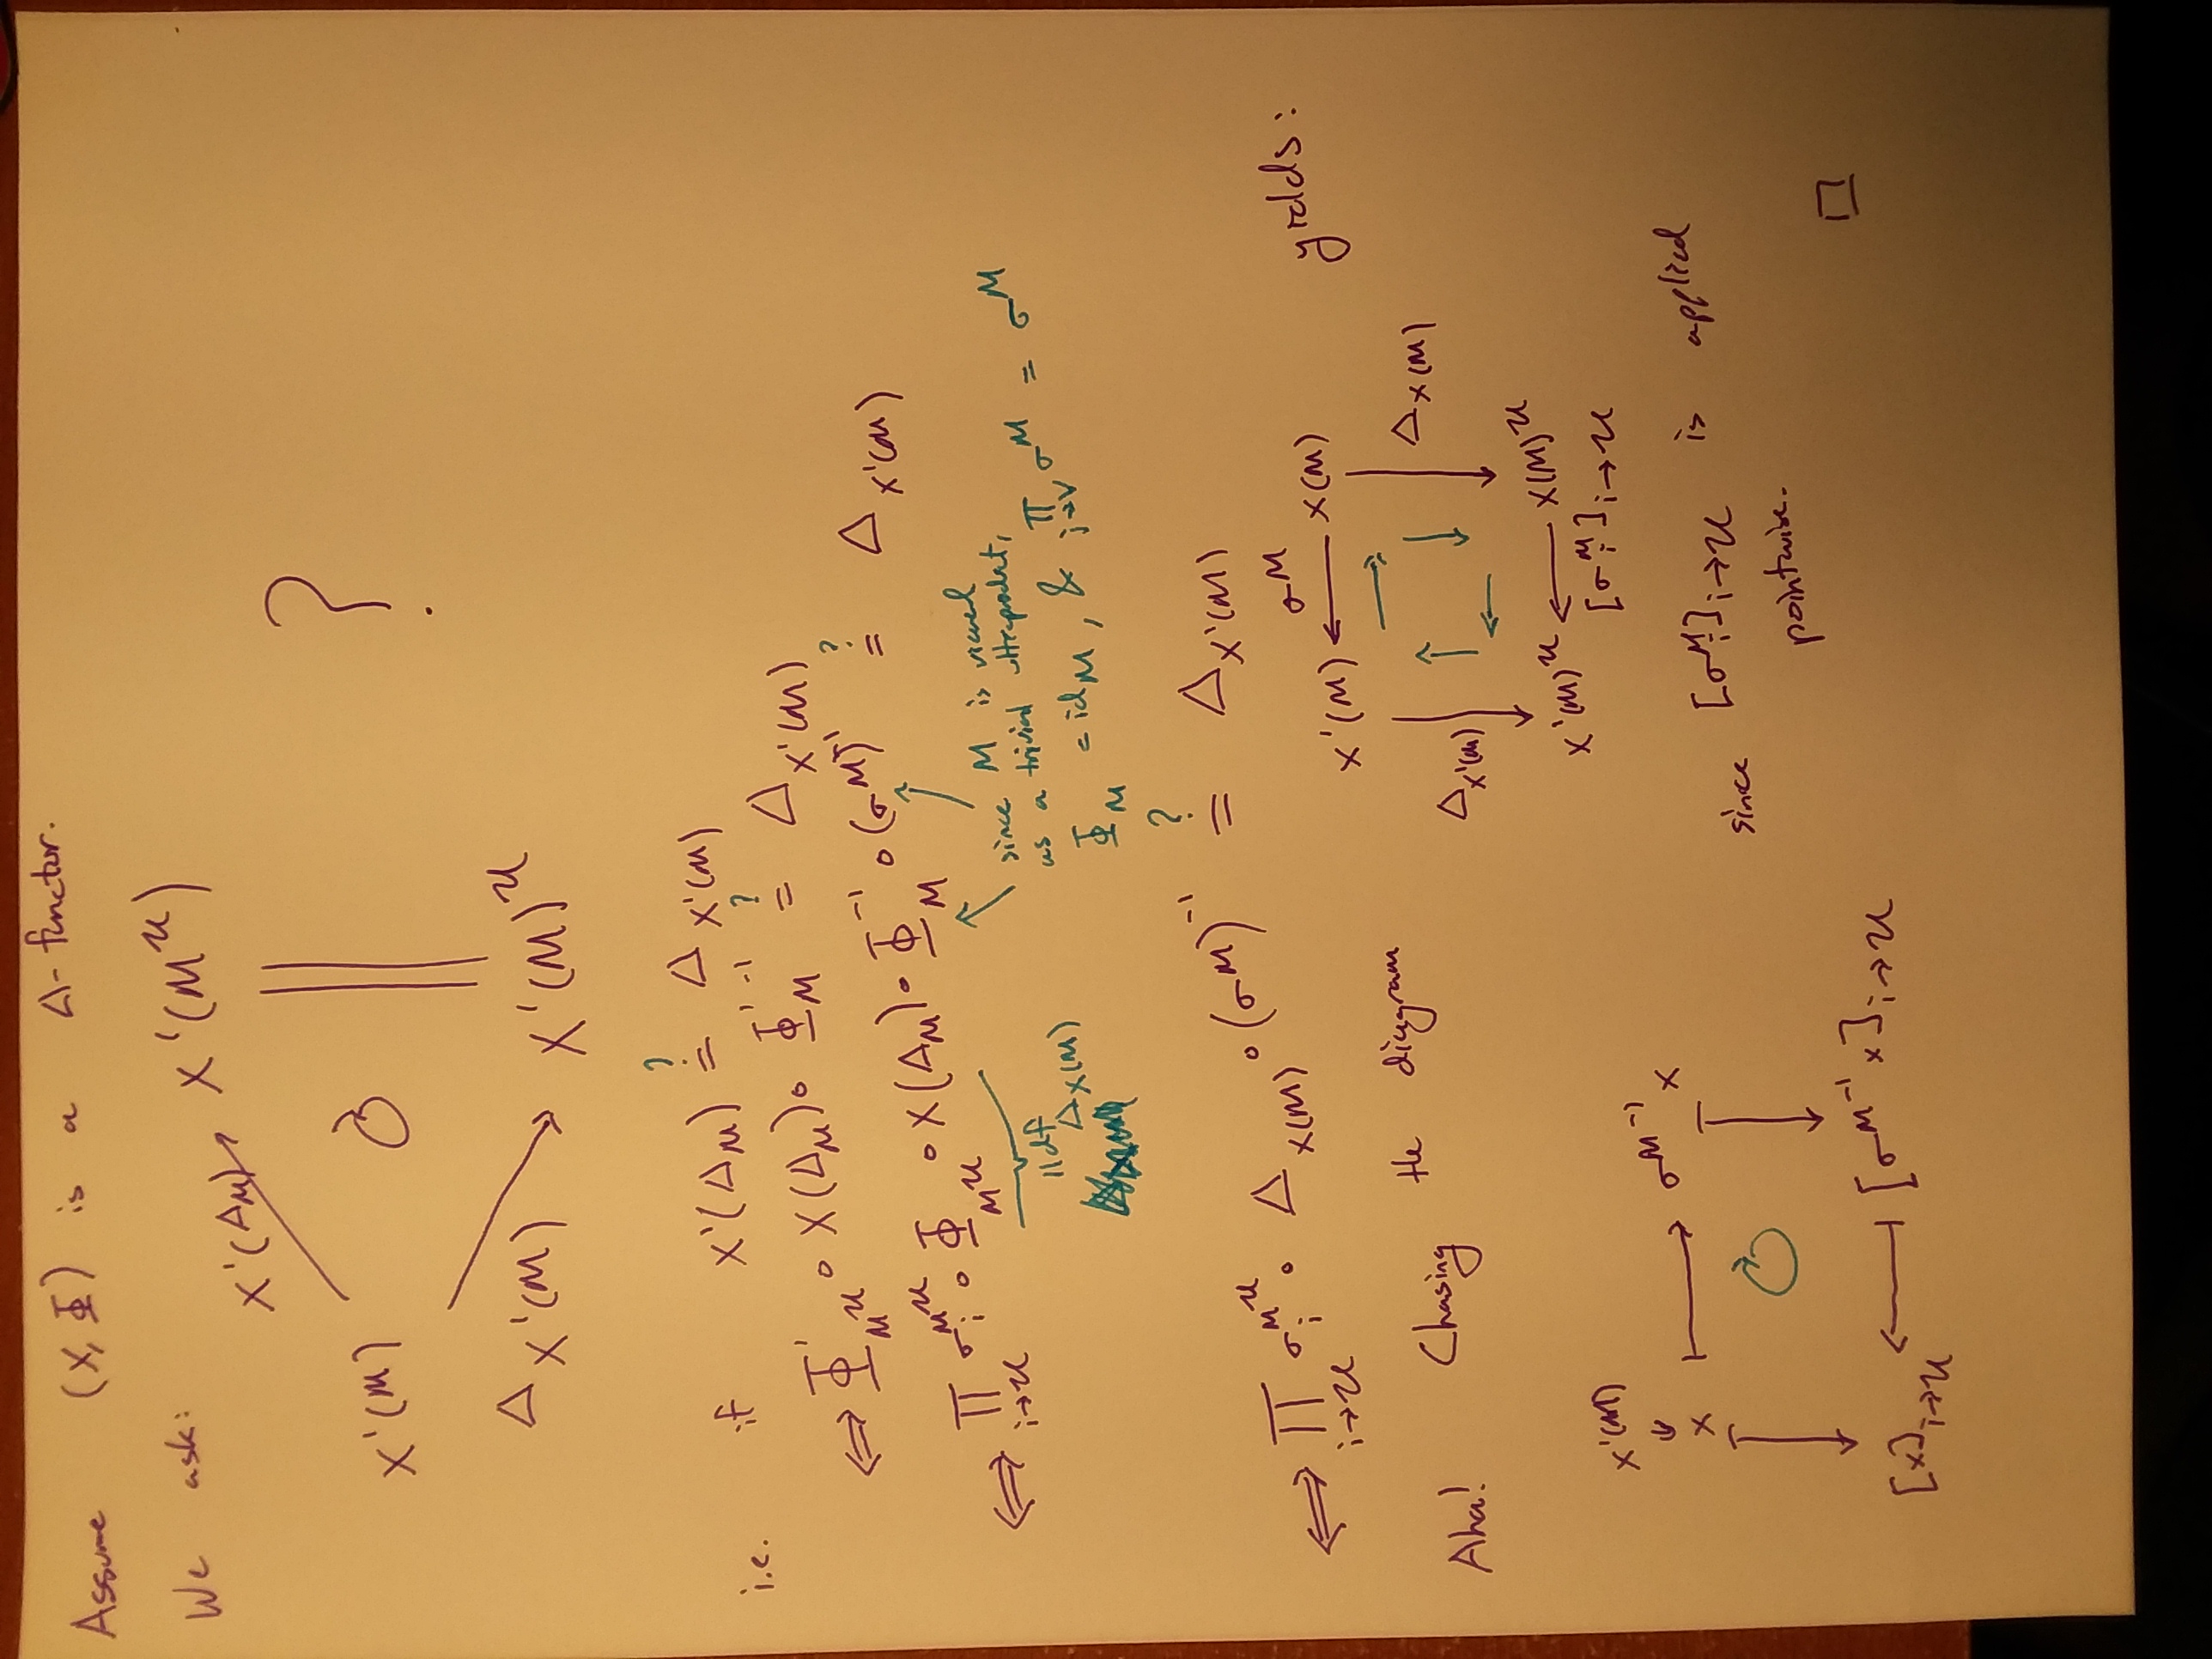 Assume (X, Φ) is a Δ-functor.
We ask:
X'(M^𝒰)
X'(Δ_M)
X'(M)
?
Δ_{X'(M)}
X'(M)^𝒰
i.e. if X'(Δ_M) ?= Δ_{X'(M)}
⟺ Φ'_{M^𝒰} ∘ X(Δ_M) ∘ Φ'_M^{-1} ?= Δ_{X'(M)}
⟺ ∏_{i→𝒰} σ_i^{M^𝒰} ∘ Φ_{M^𝒰} ∘ X(Δ_M) ∘ Φ_M^{-1} ∘ (σ^M)^{-1} ?= Δ_{X'(M)}
|| df
Δ_{X(M)}
since M is viewed
as a trivial ultraproduct,
Φ_M = id_M, & ∏_{j→V} σ^M = σ^M
⟺ ∏_{i→𝒰} σ_i^{M^𝒰} ∘ Δ_{X(M)} ∘ (σ^M)^{-1} ?= Δ_{X'(M)}
Aha! Chasing the diagram
σ^M
X'(M) ← X(M)
yields:
Δ_{X'(M)}
Δ_{X(M)}
X'(M)^𝒰 ← X(M)^𝒰
[σ_i^M]_{i→𝒰}
X'(M)
x ↦ σ^{M^{-1}} x
[x]_{i→𝒰} ↤ [σ^{M^{-1}} x]_{i→𝒰}
since [σ_i^M]_{i→𝒰} is applied
pointwise.
□